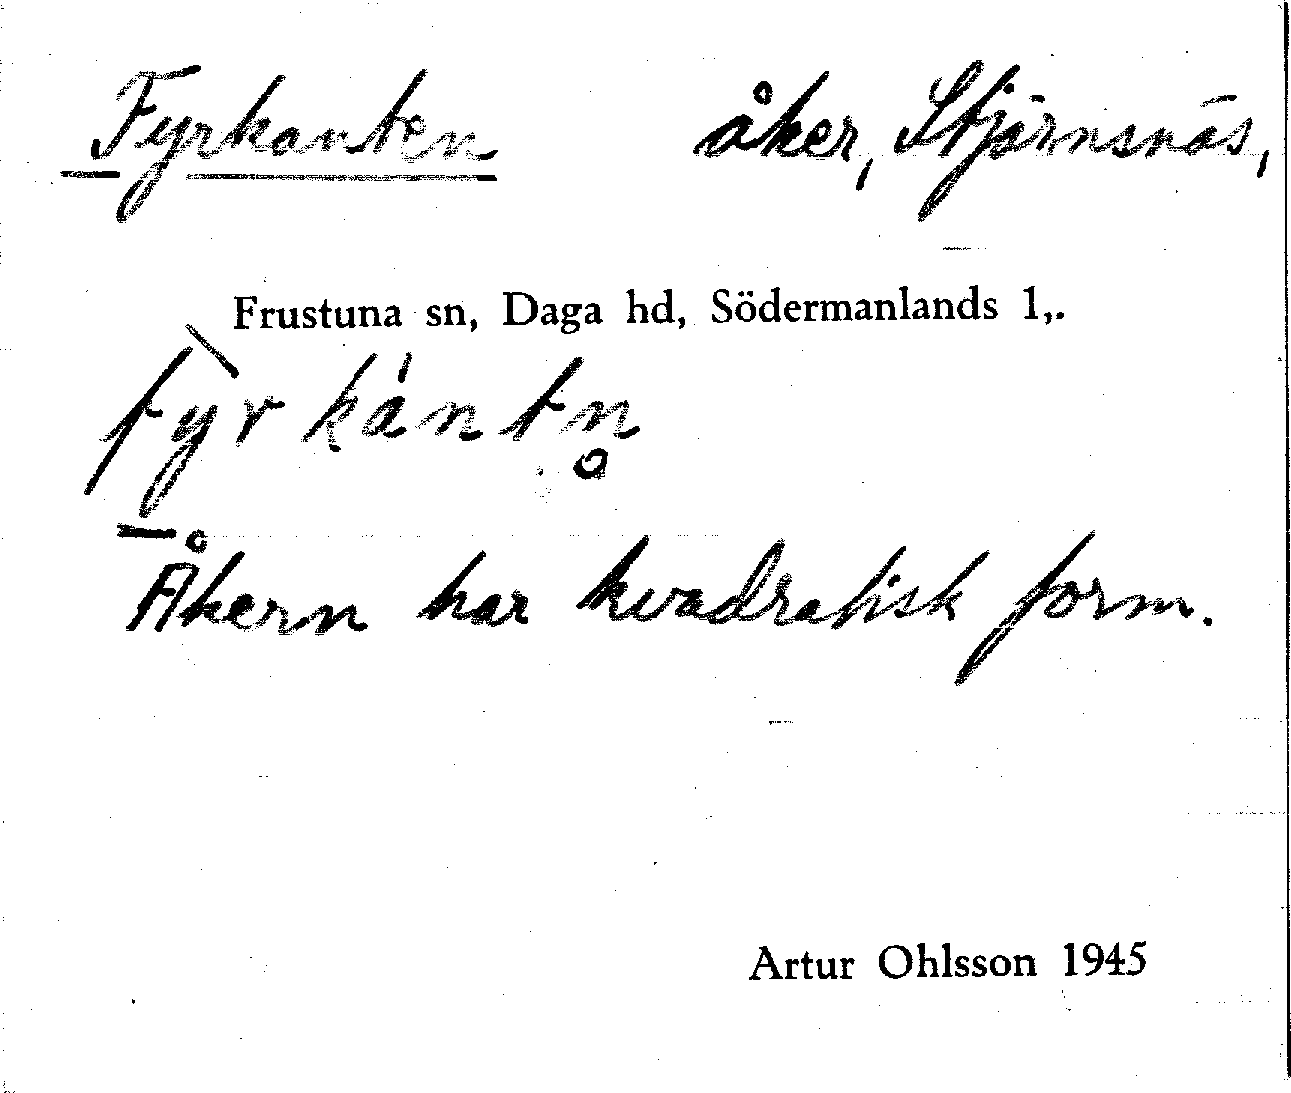 Fyrkanten åker, Stjärnsnäs,
Frustuna sn, Daga hd, Södermanlands l,.
f̀yrkántn̥
Åkern har kvadratisk form.
Artur Ohlsson 1945